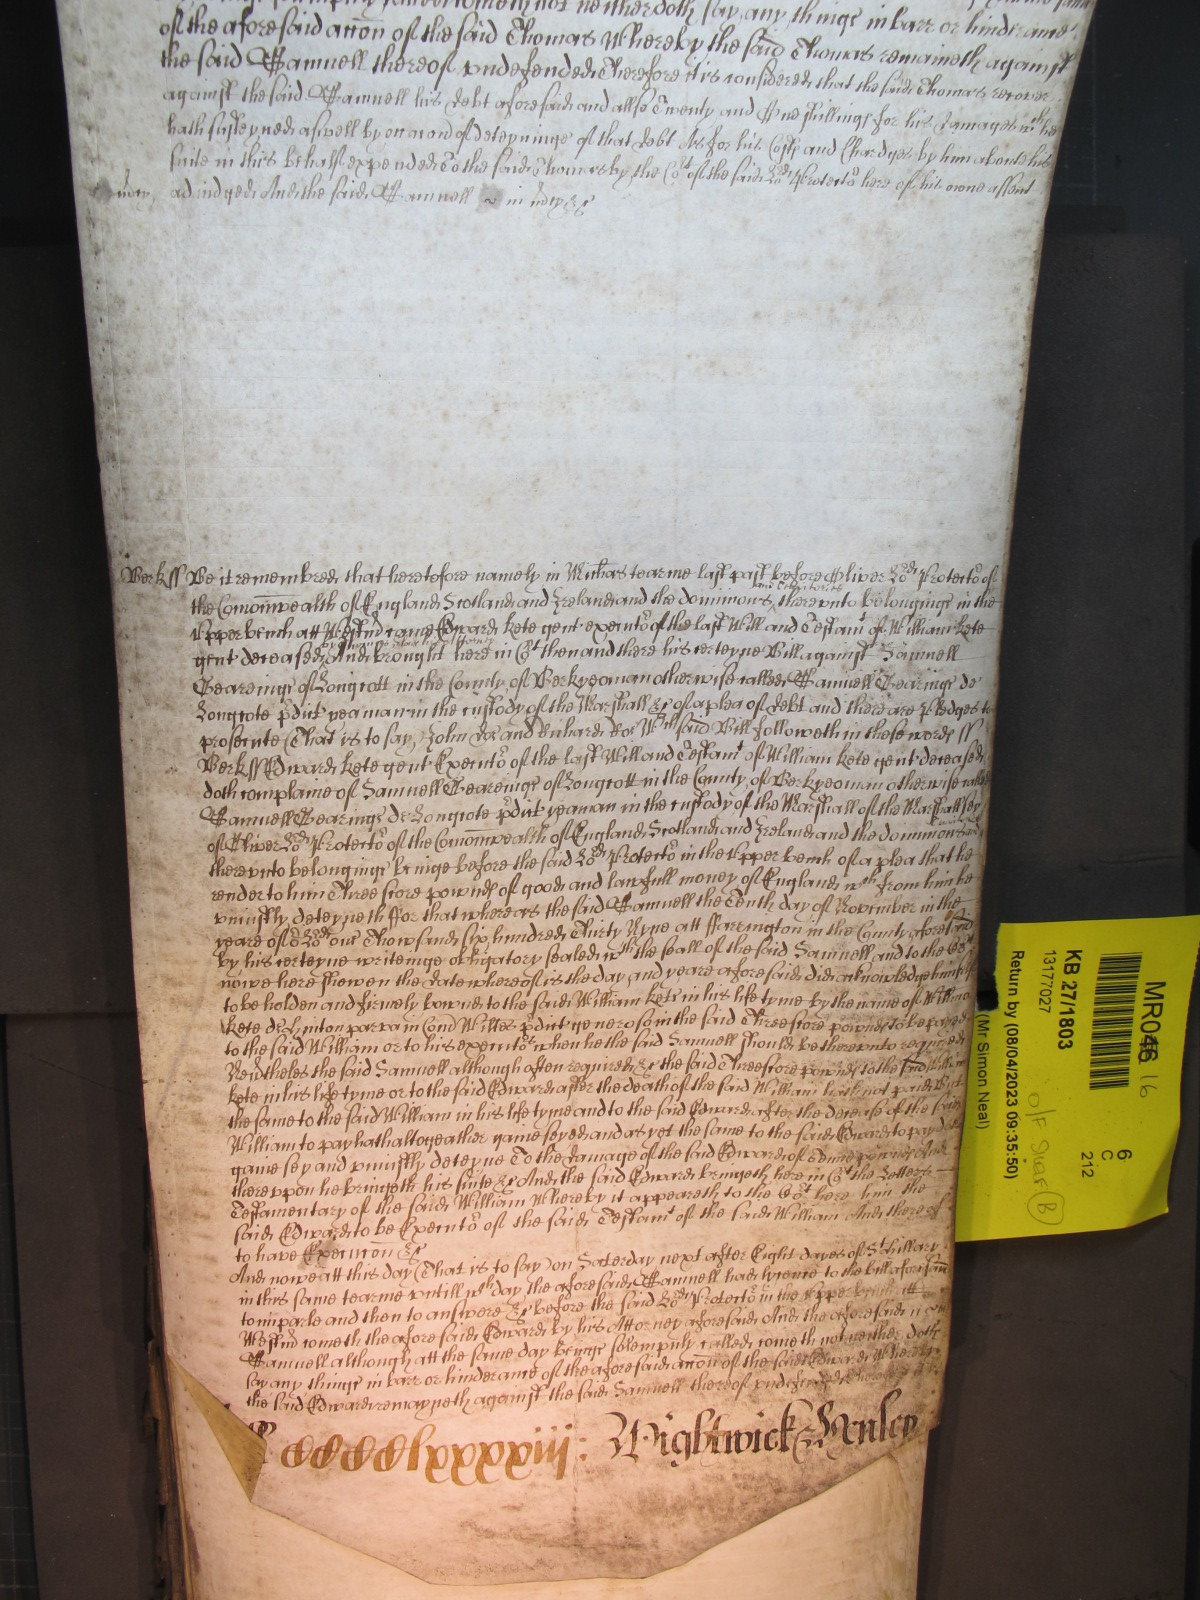 of the aforesaid accon of the said Thomas Whereby the said Thomas remaineth against
the said Samuell thereof undefended Therefore it is considered that the said Thomas recover
against the said Samuell his debt aforesaid and allso Twenty and shillings for his damages wch he
hath susteyned aswell by occacon of deteyninge of that debt As for his Costs and Chardges by him about his
suite in this behalf expended To the said Thomas by the Cort of the said Lord Protector here of his owne assent
mcy adiudged And the said Samuell in mcy &c
Berk ss Be it remembred that heretofore namely in Michas tearme last past before Oliver Lord Protector of
the Comonwealth of England Scotland and Ireland and the dominions thereunto belonginge in the
Upper bench att Westmr came Edward kete gent executor of the last Will and Testamt of William kete
gent deceased And brought here in Cort then and there his certeyne Bill against Samuell
Gearinge of Longcott in the County of Berk yeoman otherwise called Samuell Gearinge de
Longcote pdict yeaman in the custody of the Marshall &c of a plea of debt and there are Pledges to
prosecute (That is to say) John Doe and Richard Roe Wch said Bill followeth in these words ss
Berk ss Edward kete gent Executor of the last Will and Testamt of William kete gent deceased
doth complaine of Samuell Gearinge of Longcott in the County of Berk yeoman otherwise called
Samuell Gearinge de Longcote pdict yeaman in the custody of the Marshall of the Marshallsey
of Oliver Lord Protector of the Comonwealth of England Scotland and Ireland and the dominions
thereunto belonginge beinge before the said Lord Protector in the Upper bench of a plea that he
render to him Three score pownds of good and lawfull money of England wch from him he
uniustly deteyneth ffor that whereas the said Samuell the Tenth day of November in the
yeare of or Lord one Thowsand six hundred Thirty Nyne att ffarrington in the County aforesaid
by his certeyne writeinge obligatory sealed wth the seall of the said Samuell and to the Cort
nowe here shewen the date whereof is the day and yeare aforesaid did acknowledge himself
to be holden and firmely bownd to the said William kete in his life tyme by the name of Willimo
kete de Hinton parva in Com Wiltes pdict generoso in the said Threescore pownds to be payed
to the said William or to his executors when he the said Samuell should be thereunto required
Nevtheles the said Samuell although often required &c the said Threescore pownds to the said William
kete in his life tyme or to the said Edward after the death of the said William hath not paid But
the same to the said William in his life tyme and to the said Edward after the decease of the said
William to pay hath altogeather gainseyed and as yet the same to the said Edward to pay doth
gainesey and uniustly deteyne To the damage of the said Edward of Tenne pownds And
thereupon he bringeth his suite &c And the said Edward bringeth here in Cort the Letters
Testamentary of the said William Whereby it appeareth to the Cort here him the
said Edward to be Executor of the said Testamt of the said William And thereof
to have Execucion &c
And nowe att this day (That is to say) on Saterday next after Eight dayes of St Hillary
in this same tearme untill wch day the aforesaid Samuell had lycence to the bill aforesaid
to imparle and then to answere &c before the said Lord Protector in the Upper bench att
Westmr cometh the aforesaid Edward by his Attorney aforesaid And the aforesaid
Samuell although att the same day beinge solempnly called cometh not neither doth
say any thinge in barr or hinderance of the aforesaid accon of the said Edward Whereby
the said Edward remayneth against the said Samuell thereof undefended Therefore it is
Wightwick & Henley
MR046 16
6
C
212
KB 27/1803
13177027
Return by (08/04/2023 09:35:50)
(Mr Simon Neal)
O/F Shar B